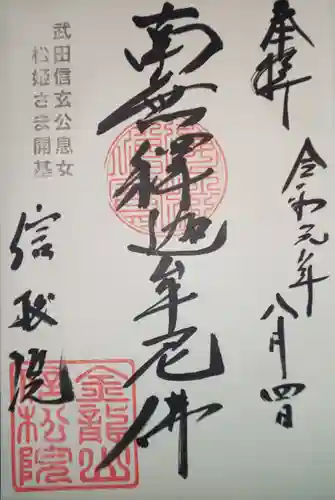 奉拝
令和元年八月四日
南無釋迦牟尼佛
武田信玄公息女
松姫さま開基
信松院
金龍山
信松院